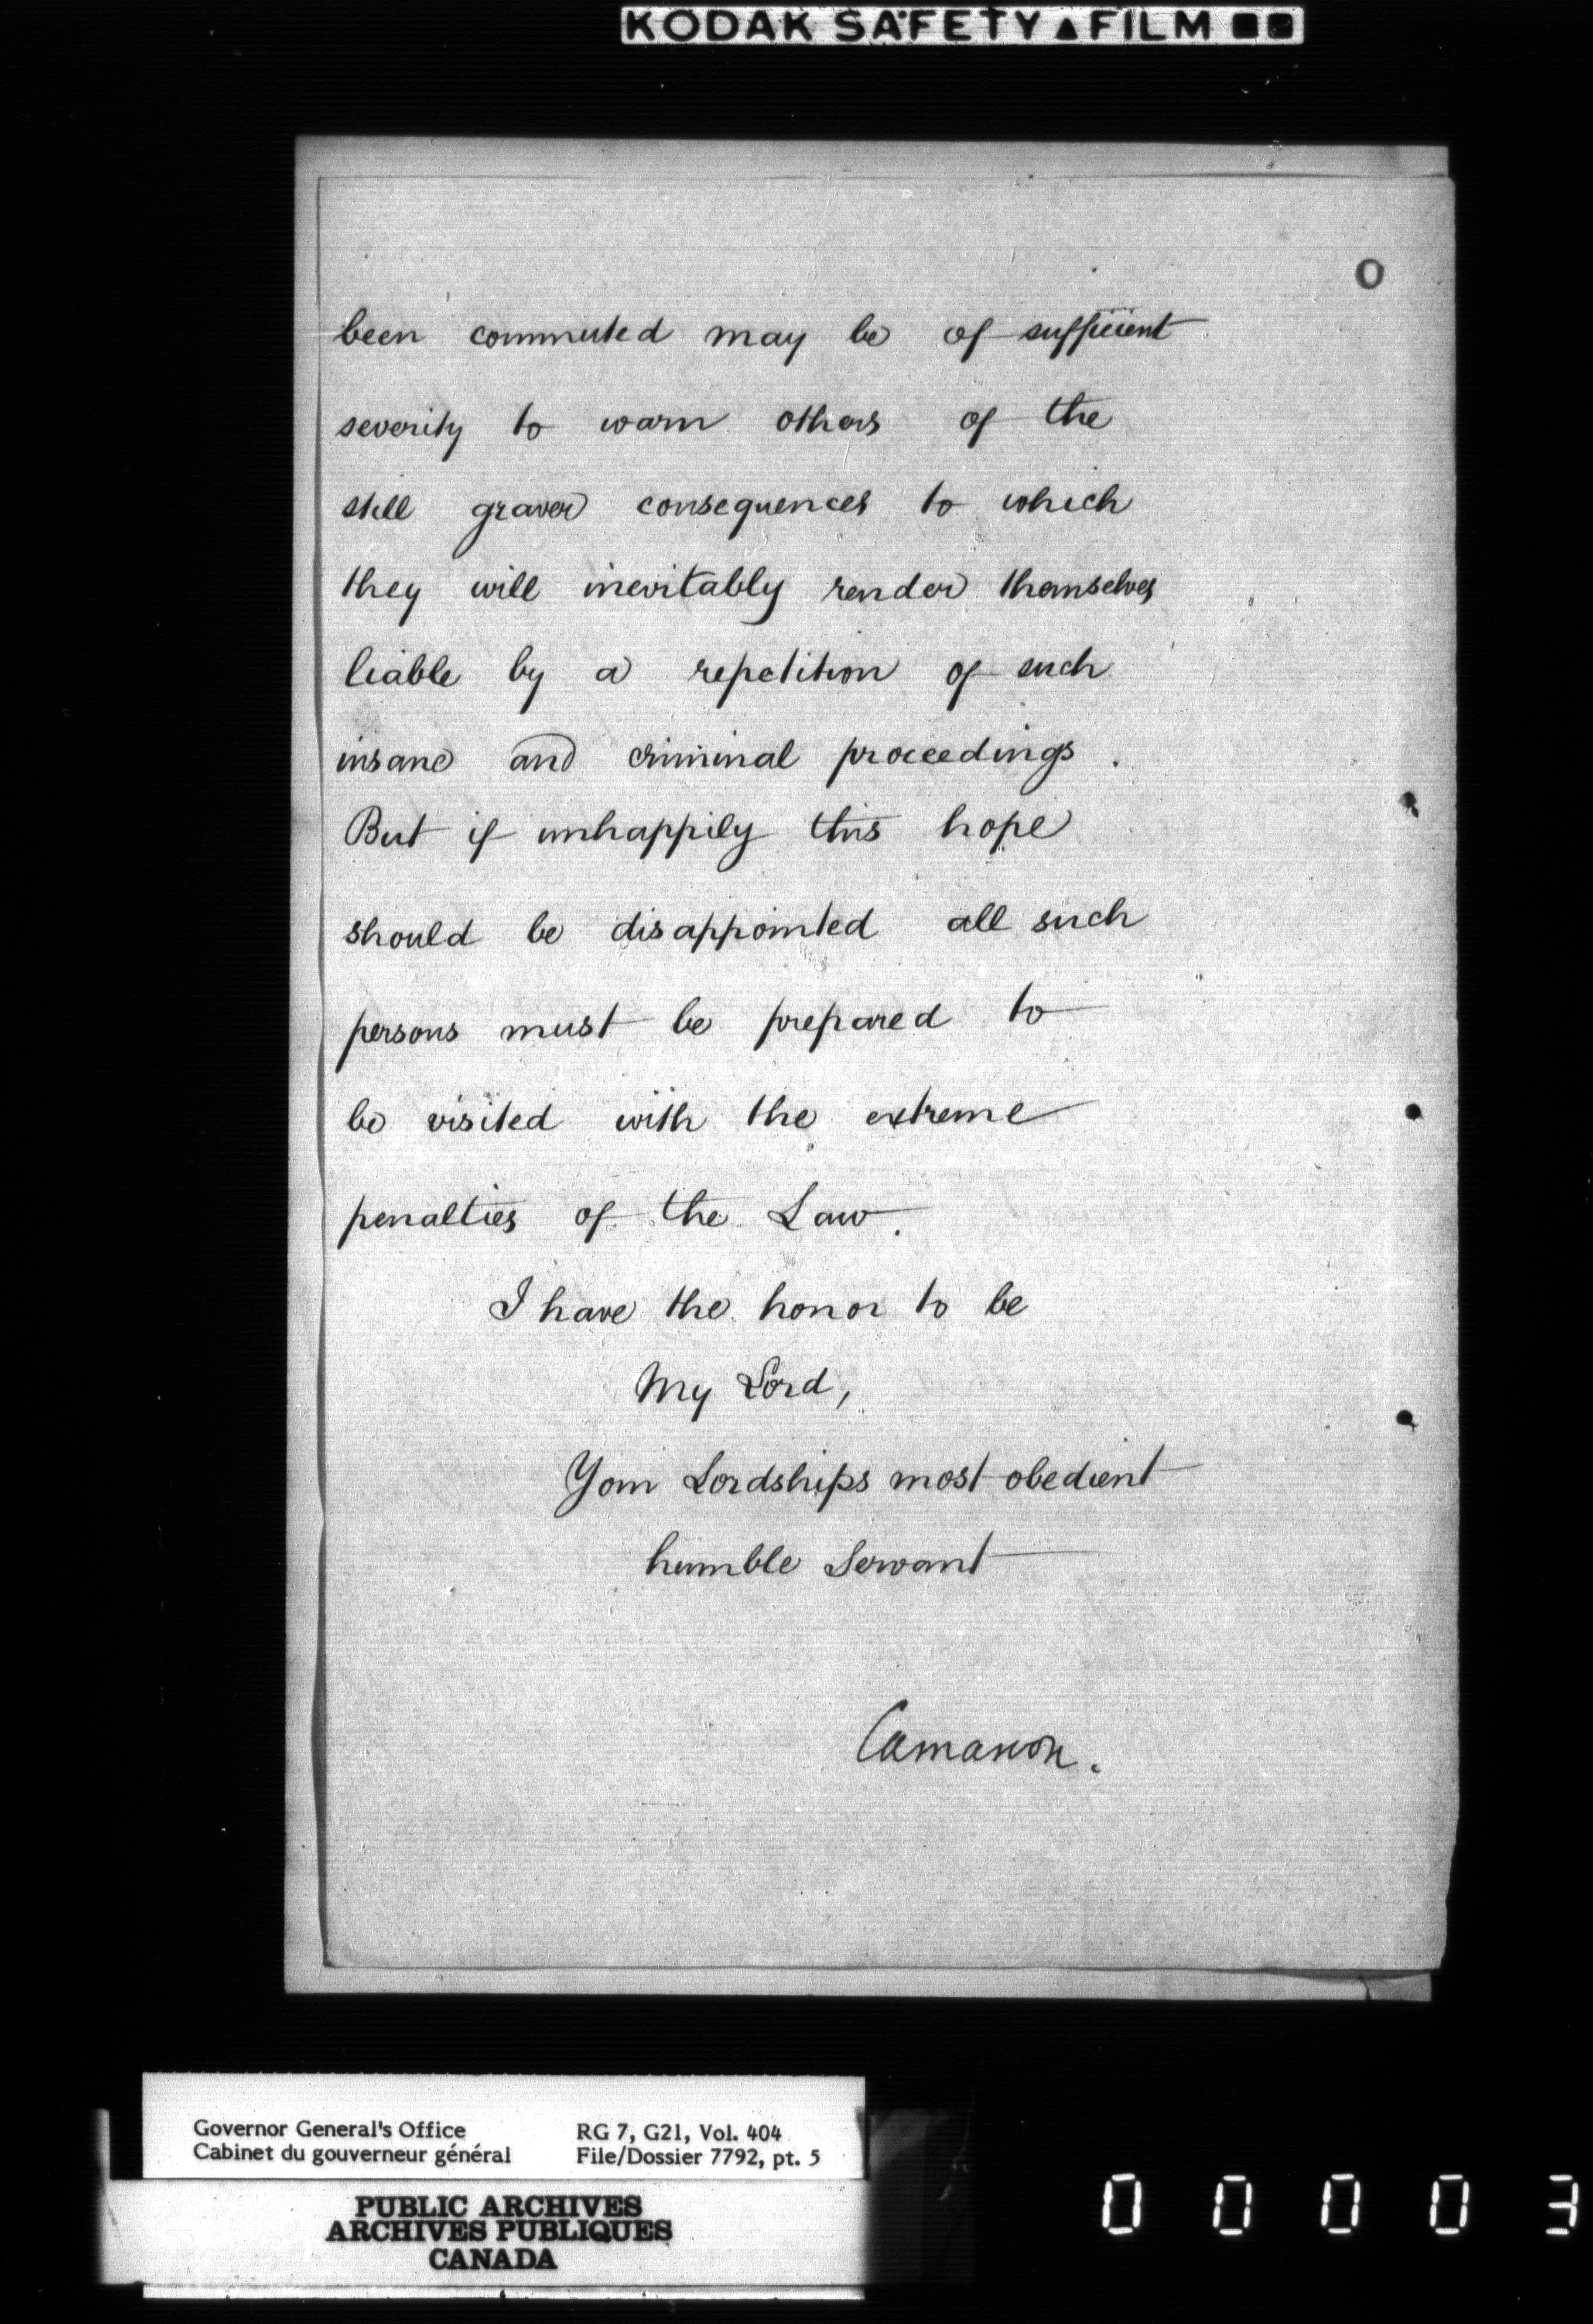 KODAK SAFETY ▲ FILM ■■
0
been commuted may be of sufficient
severity to warn others of the
still graver consequences to which
they will inevitably render themselves
liable by a repetition of such
insane and criminal proceedings.
But if unhappily this hope
should be disappointed all such
persons must be prepared to
be visited with the extreme
penalties of the Law.
I have the honor to be
My Lord,
Your Lordships most obedient
humble Servant
Carnarvon.
Governor General's Office RG 7, G21, Vol. 404
Cabinet du gouverneur général File/Dossier 7792, pt. 5
PUBLIC ARCHIVES
ARCHIVES PUBLIQUES
CANADA
0 0 0 0 3